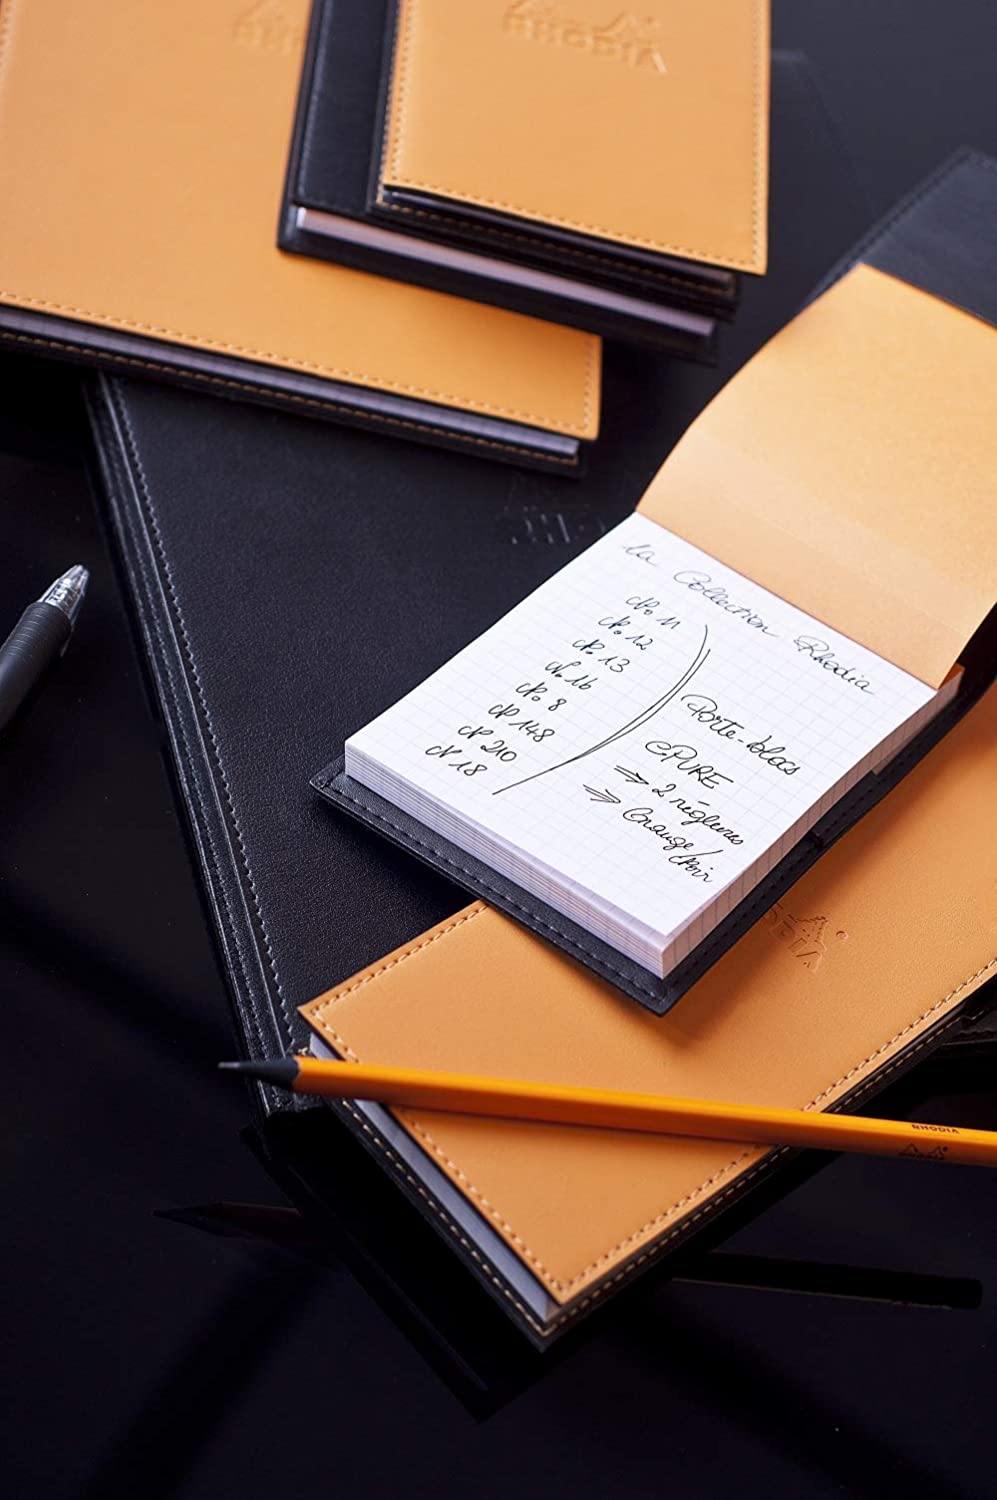 RHODIA
la Collection Rhodia
No 11
No 12
No 13
No 16
No 8
No 148
No 210
No 18
Porte-blocs
EPURE
→ 2 réglures
→ Orange/
Noir
RHODIA
RHODIA